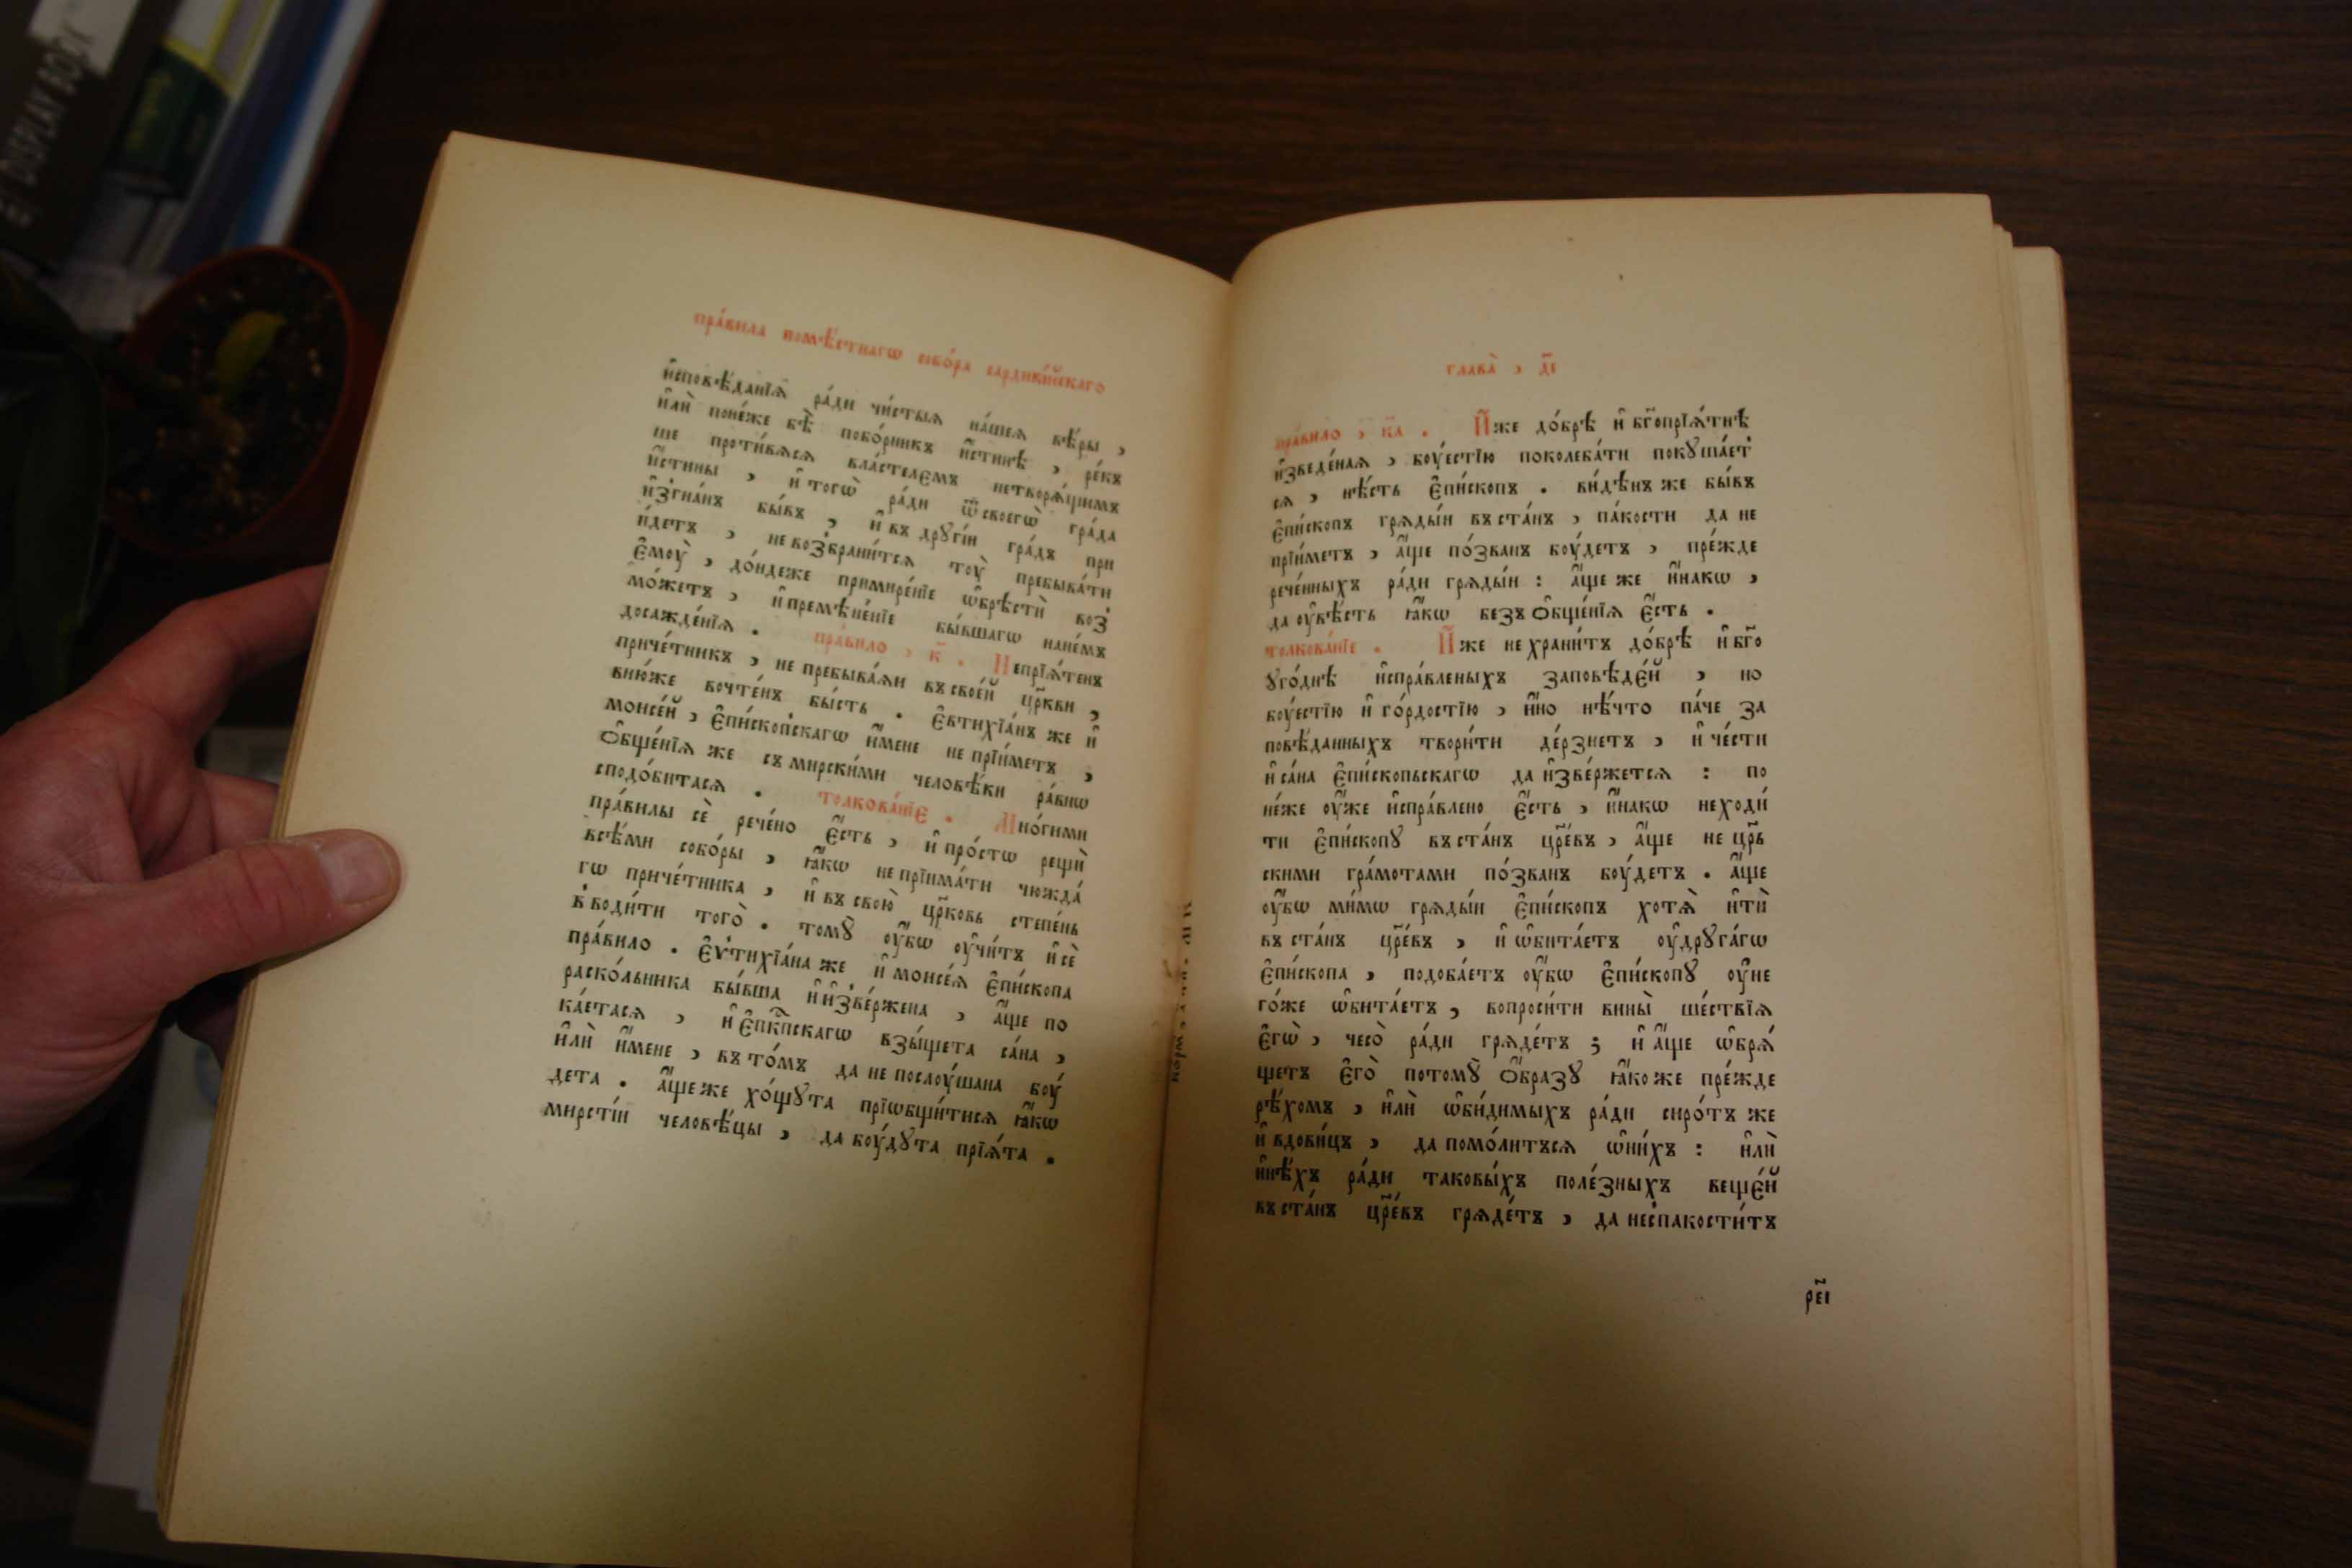 DISPLAY BOOK
пра́вила помѣ́стнагѡ собо́ра сардикі́йскаго
и҆сповѣ́данїѧ ра́ди чи́стыѧ на́шеѧ вѣ́ры ,
и҆лѝ поне́же бѣ̀ побо́рникъ и҆́стинѣ , ре́къ
ше проти́вѧсѧ вла́стелємъ нетворѧ́щимъ
и҆́стины , и҆ тогѡ̀ ра́ди ѿ своегѡ̀ гра́да
и҆згна́нъ бы́въ , и҆ въ дрꙋгі́и гра́дъ прі
и́детъ , не возбрани́тсѧ тоу̀ пребыва́ти
є҆моу̀ , до́ндеже примире́нїе ѡ҆брѣстѝ воз
мо́жетъ , и҆ премѣне́нїе бы́вшагѡ нане́мъ
досажде́нїѧ . правило , к҃ . Непрїѧ́тенъ
приче́тникъ , не пребыва́ѧи въ свое́й цр҃кви ,
внюже вочте́нъ бы́сть . Є҆втихїа́нъ же и҆
моисе́й , є҆пи́скопскагѡ и҆́мене не прїи́метъ ,
Ѻ҆бще́нїѧ же съ мирски́ми человѣ́ки ра́внѡ
сподо́битасѧ . толкова́нїе . Мно́гими
пра́вилы сѐ рече́но є҆́сть , и҆ про́стѡ рещѝ
всѣ́ми собо́ры , ꙗ҆́кѡ не прїима́ти чюжда́
гѡ приче́тника , и҆ въ свою̀ цр҃ковь степе́нь
вводи́ти того̀ . томꙋ̀ оу҆́бѡ оу҆чи́тъ и҆ сѐ
пра́вило . Є҆ѵтихїа́на же и҆ моисе́ѧ є҆пи́скопа
раско́льника бы́вша и҆ и҆зве́ржена , а҆́ще по
ка́етасѧ , и҆ є҆пк҃пскагѡ взы́щета са́на ,
и҆лѝ и҆́мене , въ то́мъ да не послоу́шана боу́
дета . а҆́ще же хо́щꙋта прїѡбщи́тисѧ ꙗ҆́кѡ
мирсті́и человѣ́цы , да боу́дꙋта прїѧ́та .
глава̀ , д҃і
пра́вило , к҃а . И҆́же до́брѣ и҆ бг҃опрїѧ́тнѣ
и҆зведе́наѧ , боуе́стїю поколеба́ти покꙋша́ет
сѧ , нѣ́сть є҆пи́скопъ . ви́дѣнъ же бы́въ
є҆пи́скопъ грѧды́и въ ста́нъ , па́кости да не
прїи́метъ , а҆́ще по́званъ боу́детъ , пре́жде
рече́нныхъ ра́ди грѧды́и : а҆́ще же и҆́накѡ ,
да оу҆вѣ́сть ꙗ҆́кѡ безъ Ѻ҆бще́нїѧ є҆́сть .
толкова́нїе . И҆́же не храни́тъ до́брѣ и҆ бг҃о
ꙋго́днѣ и҆спра́вленыхъ заповѣде́й , но
боуе́стїю и҆ го́рдостїю , и҆́но нѣ́что па́че за
повѣ́данныхъ твори́ти де́рзнетъ , и҆ че́сти
и҆ са́на є҆пи́скопьскагѡ да и҆зве́ржетсѧ : по
не́же оу҆́же и҆спра́влено є҆́сть , и҆́накѡ неходи́
ти є҆пи́скопꙋ въ ста́нъ цр҃е́въ , а҆́ще не цр҃ь
скими гра́мотами по́званъ боу́детъ . а҆́ще
оу҆́бѡ ми́мѡ грѧды́и є҆пи́скопъ хотѧ̀ и҆тѝ
въ ста́нъ цр҃е́въ , и҆ ѡ҆бита́етъ оу҆ дрꙋга́гѡ
є҆пи́скопа , подоба́етъ оу҆́бѡ є҆пи́скопꙋ оу҆ не
го́же ѡ҆бита́етъ , вопроси́ти вины̀ ше́ствїѧ
є҆гѡ̀ , чесо̀ ра́ди грѧде́тъ ; и҆ а҆́ще ѡ҆брѧ́
щетъ є҆го̀ потомꙋ̀ Ѻ҆́бразꙋ ꙗ҆́коже пре́жде
рѣ́хомъ , и҆лѝ ѡ҆би́димыхъ ра́ди сиро́тъ же
и҆ вдови́цъ , да помо́литъсѧ ѡ҆ ни́хъ : и҆лѝ
и҆нѣ́хъ ра́ди таковы́хъ поле́зныхъ веще́й
въ ста́нъ цр҃е́въ грѧде́тъ , да неспакости́тъ
рє҃і